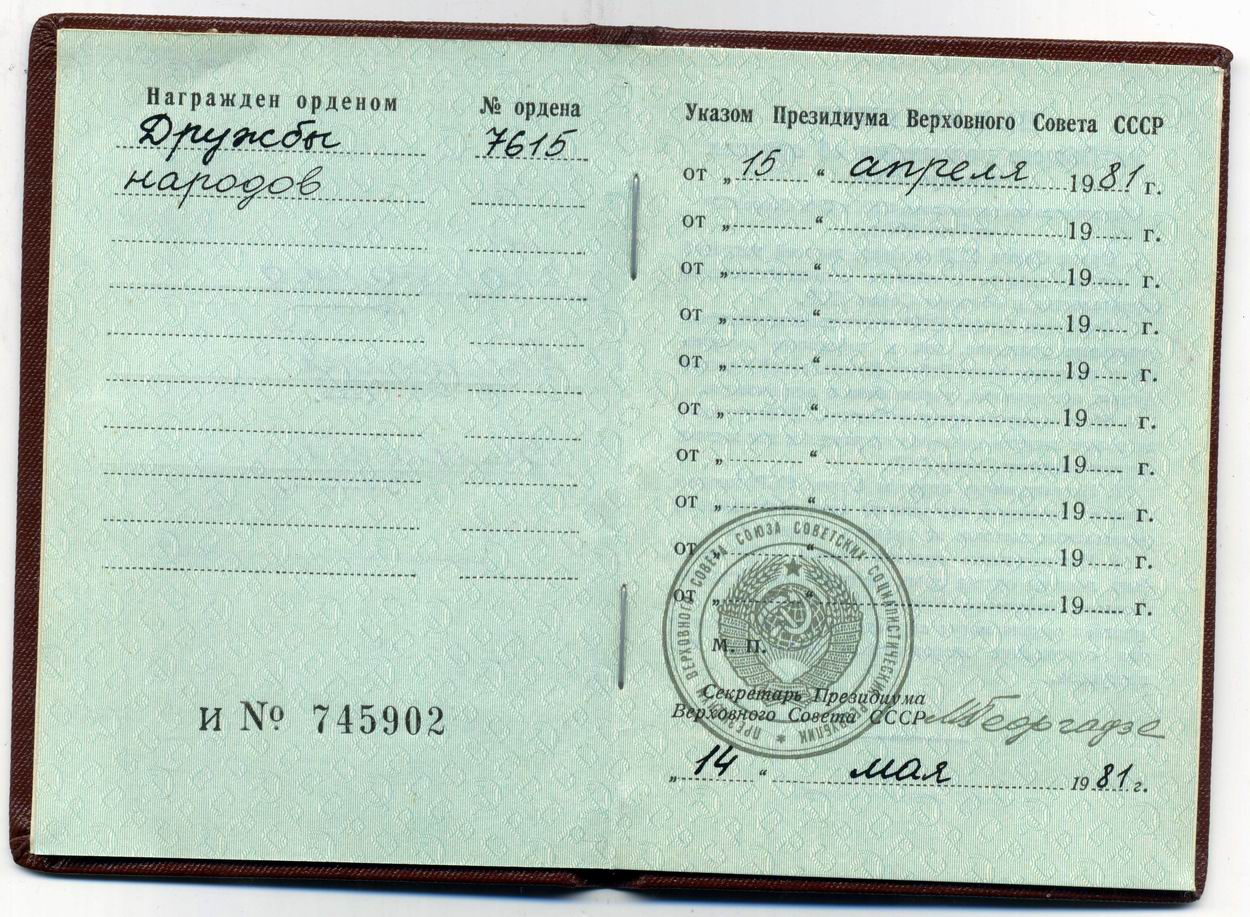 Награжден орденом
№ ордена
Дружбы
7615
народов
и № 745902
Указом Президиума Верховного Совета СССР
от „ 15 “ апреля 1981 г.
от „ “ 19 г.
от „ “ 19 г.
от „ “ 19 г.
от „ “ 19 г.
от „ “ 19 г.
от „ “ 19 г.
от „ “ 19 г.
от „ “ 19 г.
от „ “ 19 г.
М. П.
ПРЕЗИДИУМ ВЕРХОВНОГО СОВЕТА СОЮЗА СОВЕТСКИХ СОЦИАЛИСТИЧЕСКИХ РЕСПУБЛИК
Секретарь Президиума
Верховного Совета СССР МГеоргадзе
„ 14 “ мая 1981 г.